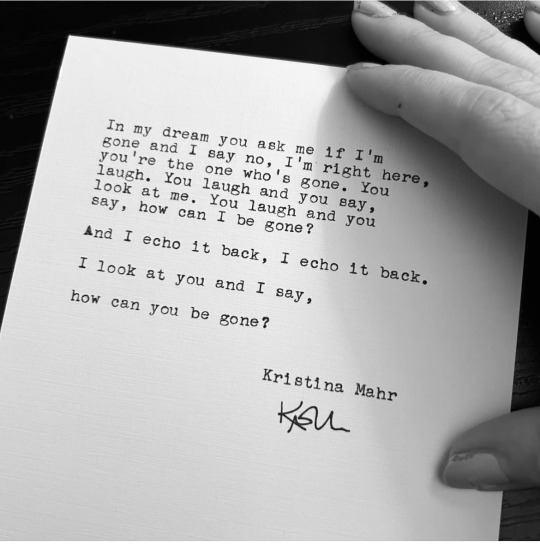 In my dream you ask me if I'm
gone and I say no, I'm right here,
you're the one who's gone. You
laugh. You laugh and you say,
look at me. You laugh and you
say, how can I be gone?
And I echo it back, I echo it back.
I look at you and I say,
how can you be gone?
Kristina Mahr